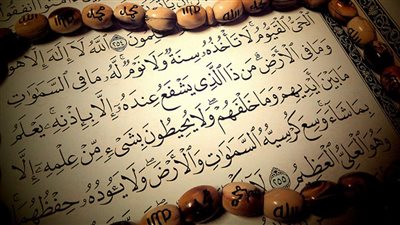 ٢٥٤ ٱللَّهُ لَآ إِلَٰهَ إِلَّا هُوَ
ٱلْحَىُّ ٱلْقَيُّومُ لَا تَأْخُذُهُۥ سِنَةٌ وَلَا نَوْمٌ ۚ لَّهُۥ مَا فِى ٱلسَّمَٰوَٰتِ
وَمَا فِى ٱلْأَرْضِ ۗ مَن ذَا ٱلَّذِى يَشْفَعُ عِندَهُۥٓ إِلَّا بِإِذْنِهِۦ ۚ يَعْلَمُ
مَا بَيْنَ أَيْدِيهِمْ وَمَا خَلْفَهُمْ ۖ وَلَا يُحِيطُونَ بِشَىْءٍ مِّنْ عِلْمِهِۦٓ إِلَّا
بِمَا شَآءَ ۚ وَسِعَ كُرْسِيُّهُ ٱلسَّمَٰوَٰتِ وَٱلْأَرْضَ ۖ وَلَا يَـُٔودُهُۥ حِفْظُهُمَا ۚ
وَهُوَ ٱلْعَلِىُّ ٱلْعَظِيمُ ٢٥٥ لَآ
محمد
محمد
الله
الله